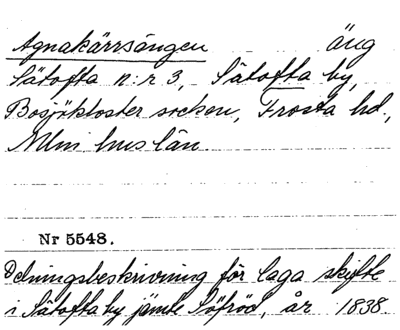 Agnakärrsängen äng
Sätofta n:r 3, Sätofta by,
Bosjökloster socken, Frosta hd.,
Mlm hus län
Nr 5548.
Delningsbeskrivning för laga skifte
i Sätofta by jämte Söfröd, år 1838.